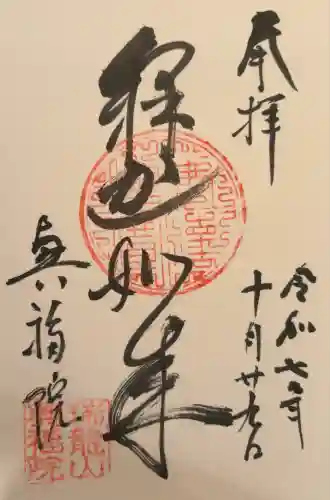 奉拝
令和七年
十月廿九日
釋迦如来
真福院